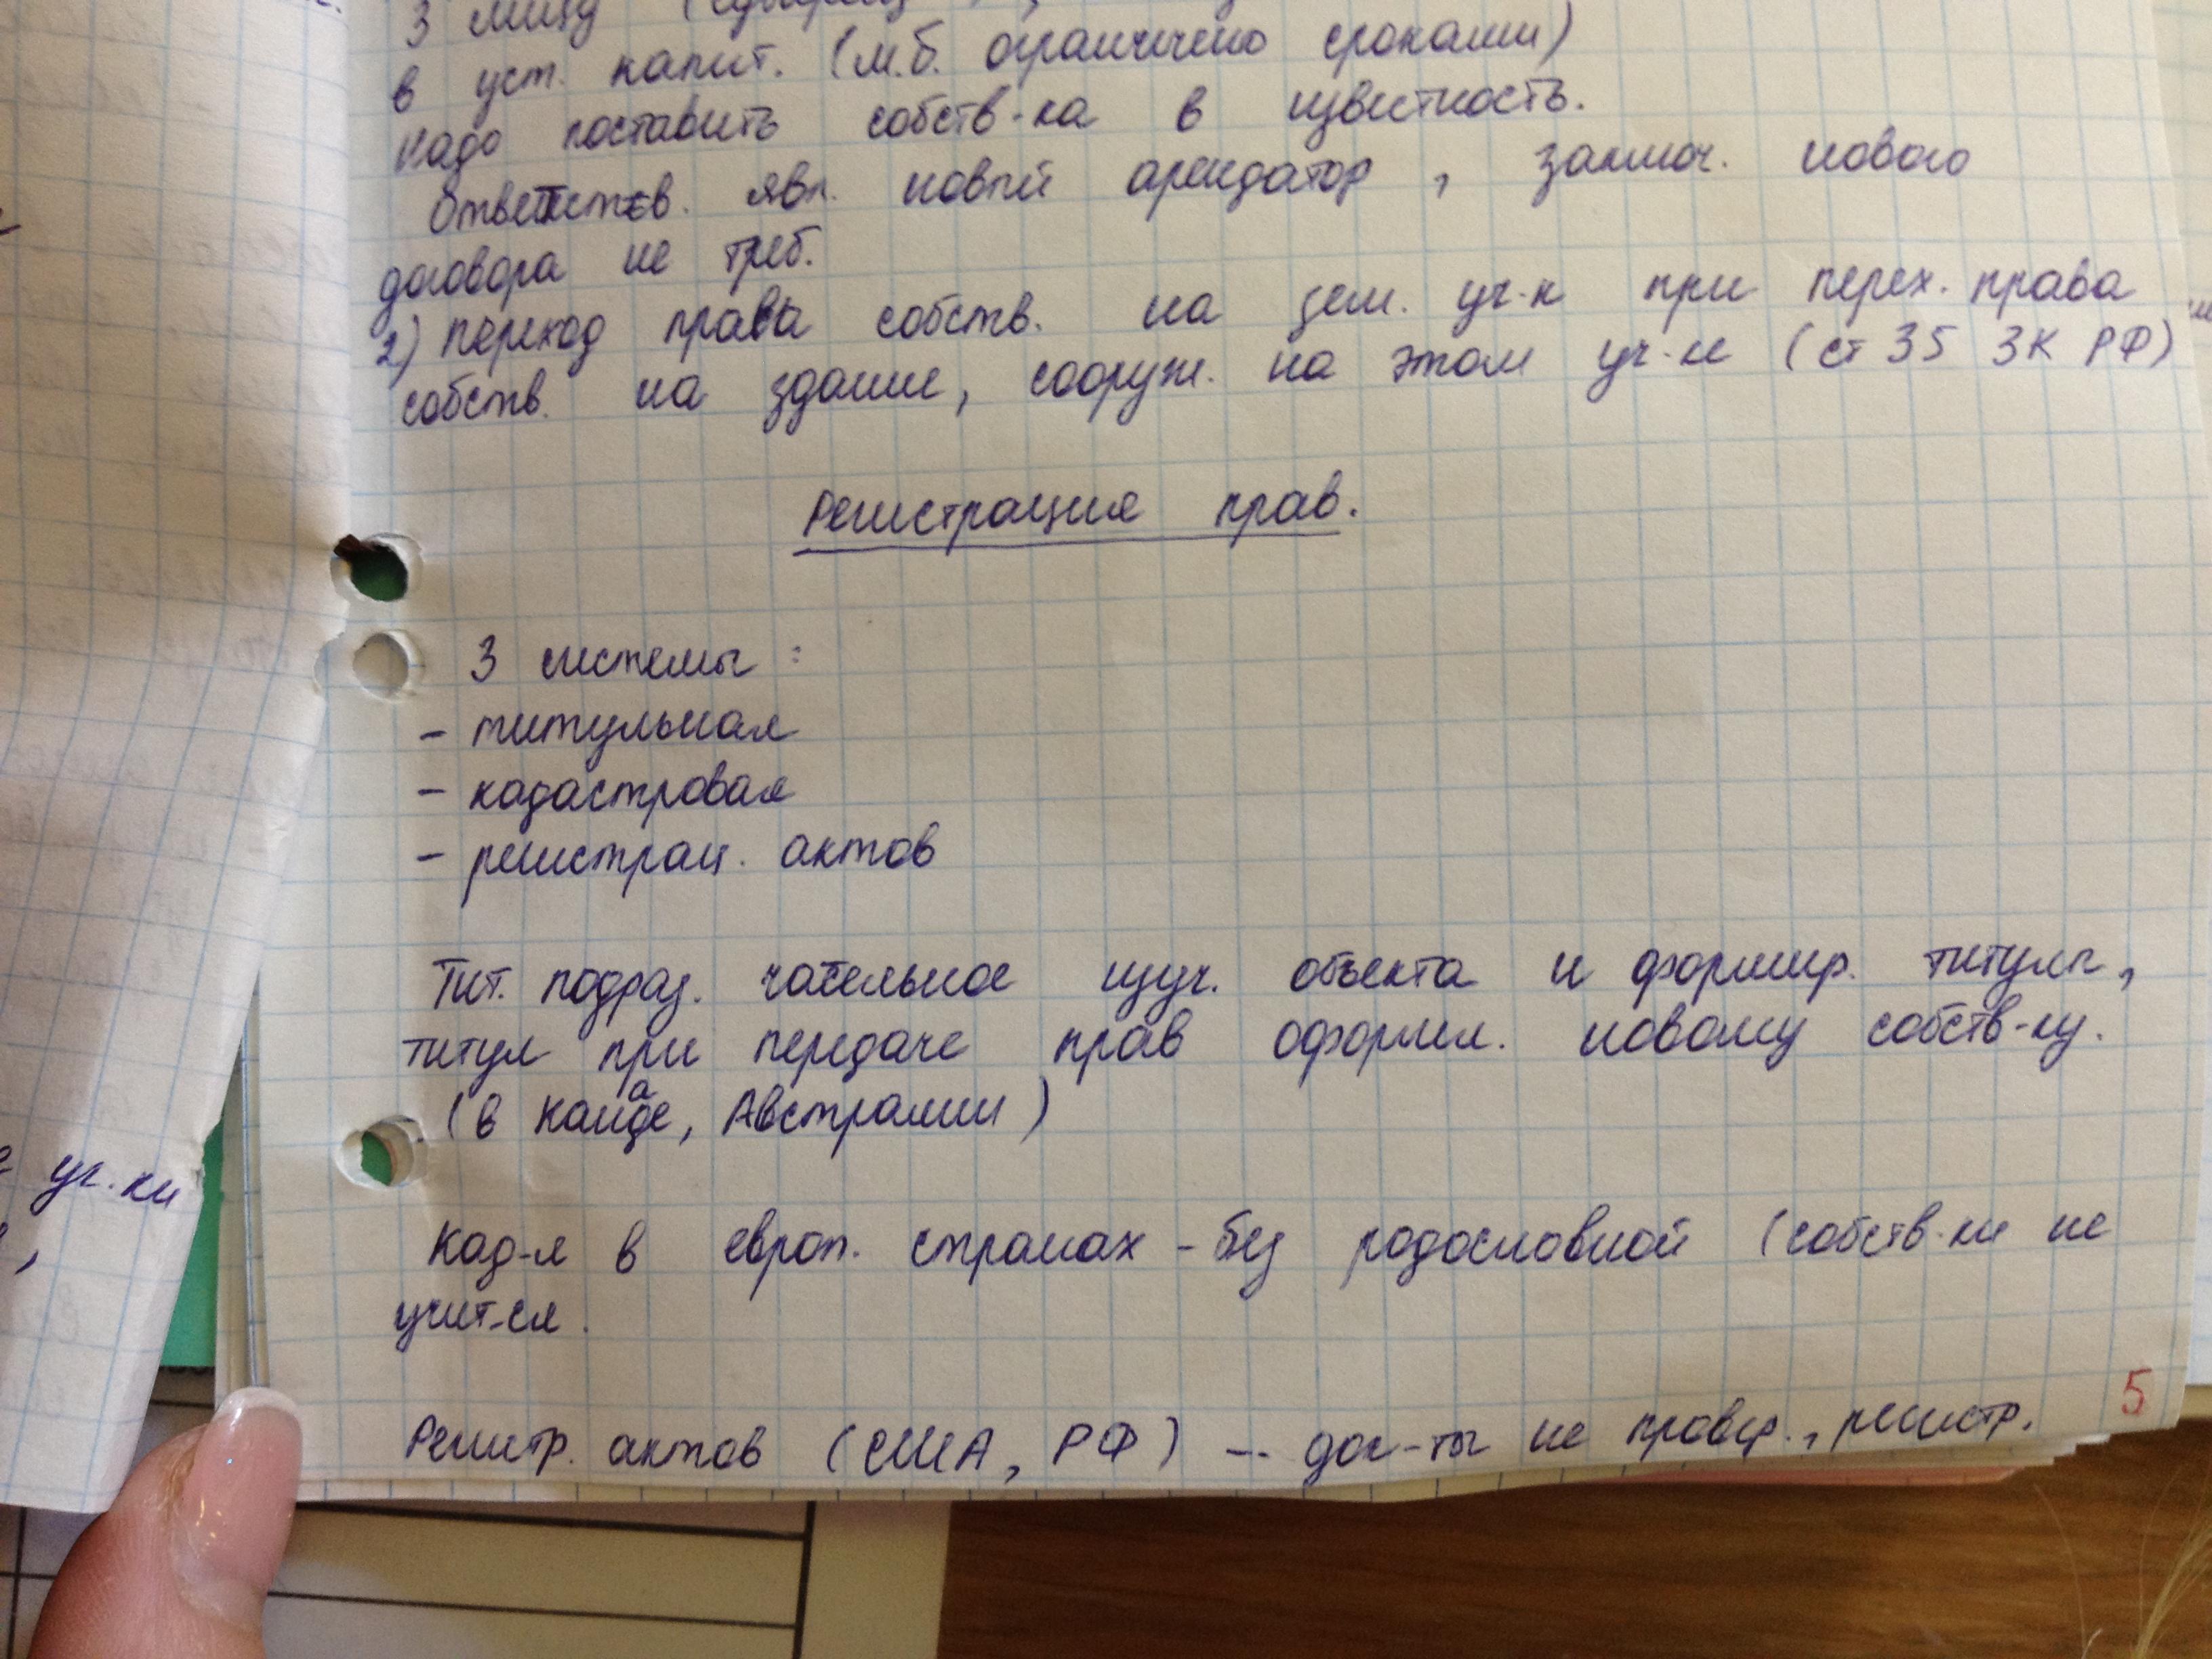 3 лицу
в уст. капит. (м.б. ограничено сроками)
Надо поставить собств-ка в известность.
Ответств. явл. новый арендатор, заключ. нового
договора не треб.
2) переход права собств. на зем. уч-к при перех. права
собств. на здание, сооруж. на этом уч-ке (ст 35 ЗК РФ)
Регистрация прав.
3 системы:
- титульная
- кадастровая
- регистрац. актов
Тит. подраз. тщательное изуч. объекта и формир. титулы,
титул при передаче прав оформл. новому собств-ку.
(в Канаде, Австралии)
уч-ки
Кад-я в европ. странах - без родословной (собств-ки не
учит-ся.
Регистр. актов (США, РФ) - док-ты не провер., регистр.
5